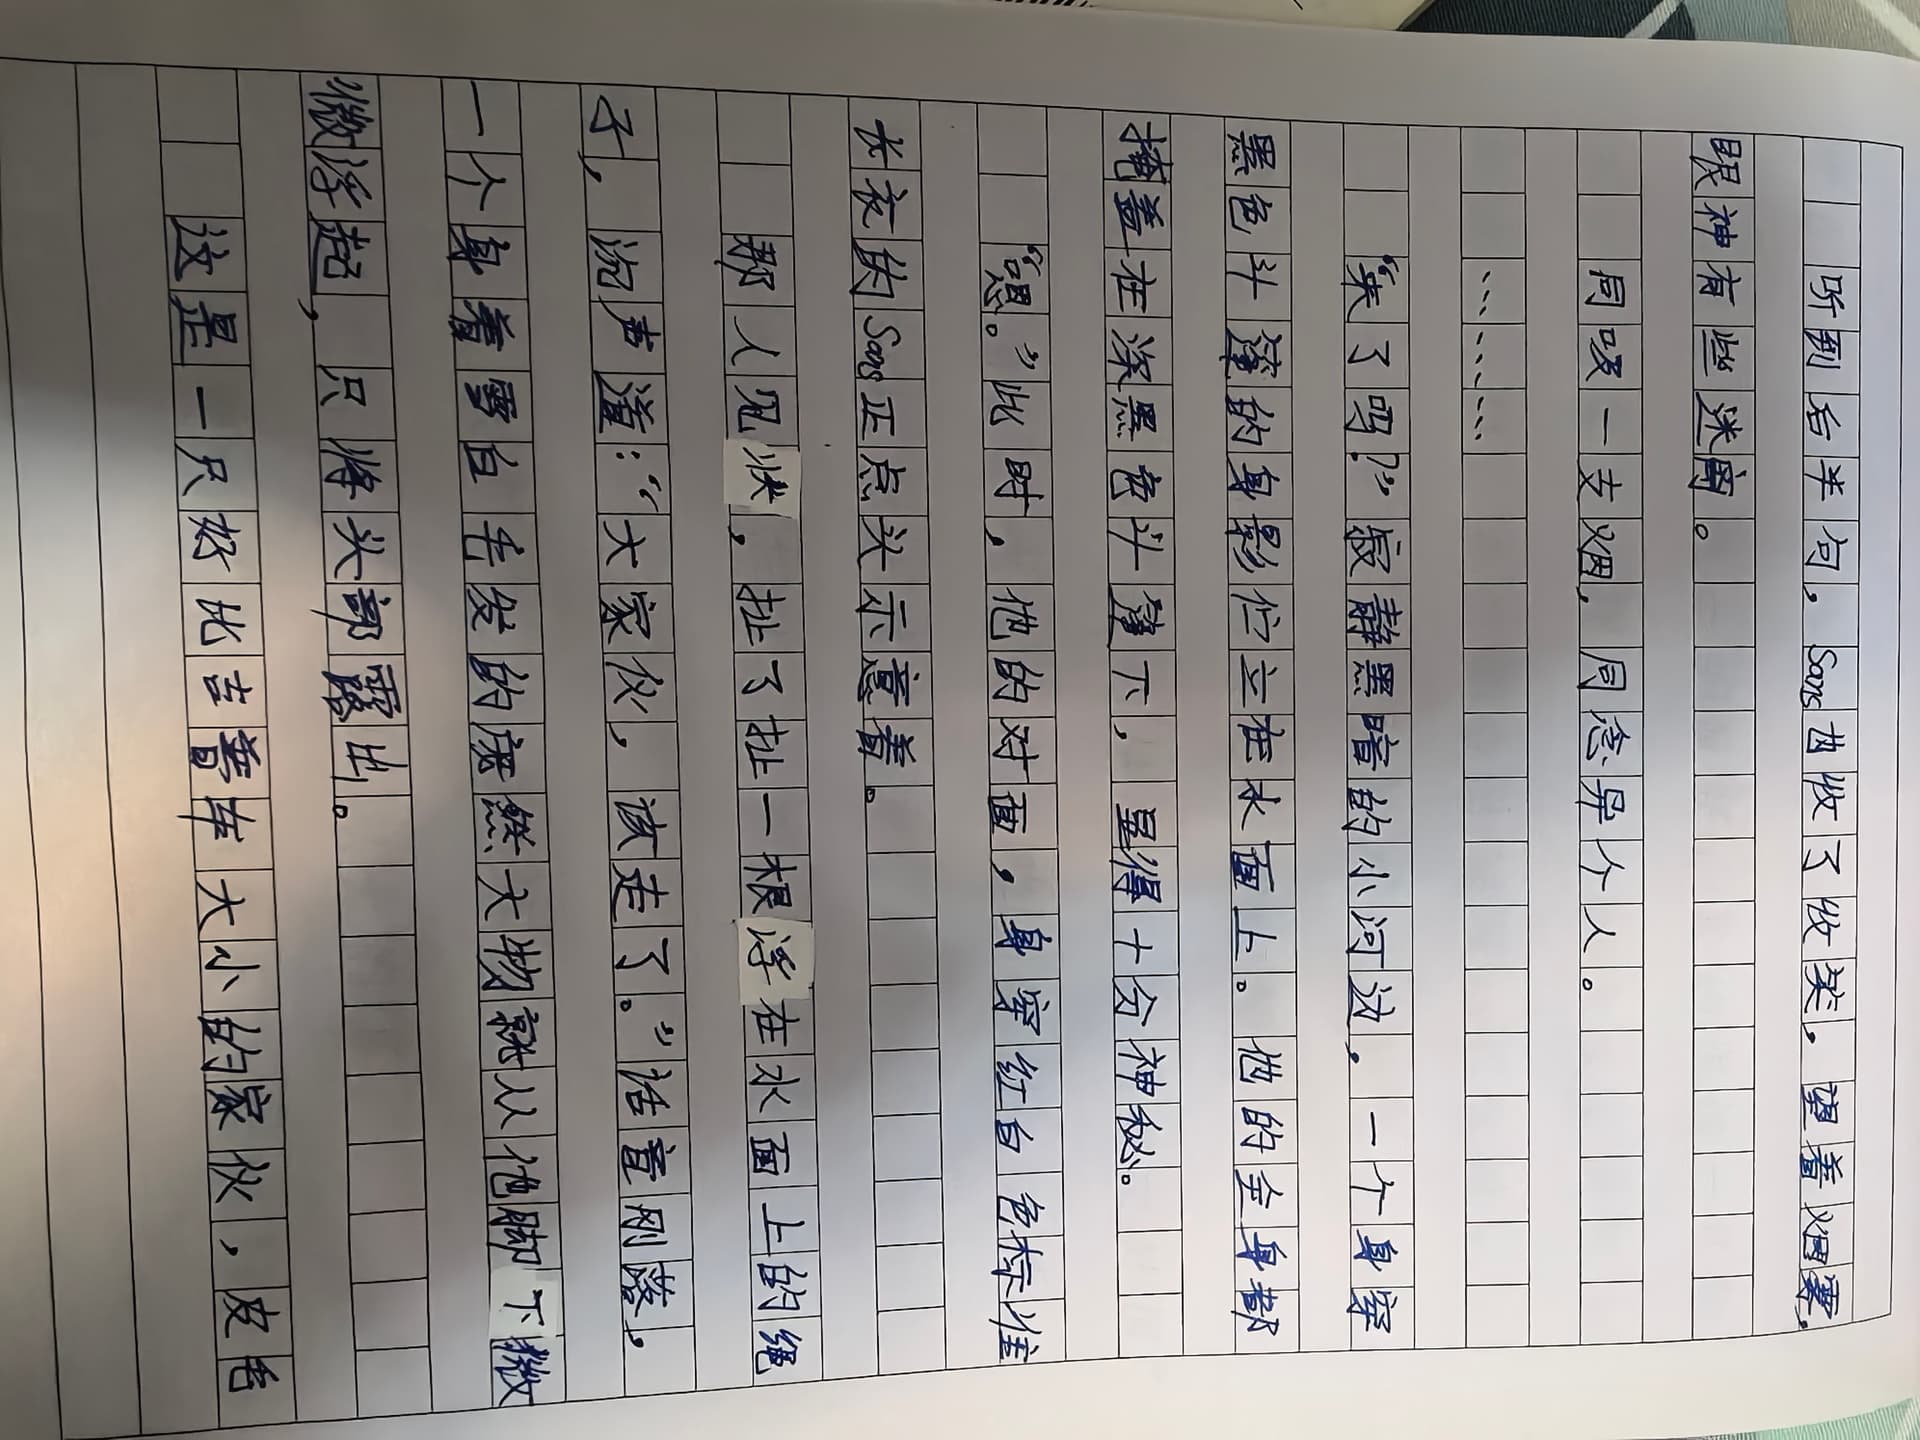 听到后半句，Sans也收了收笑，望着烟雾，
眼神有些迷茵。
同吸一支烟，同念异个人。
…………
“笑了吗？”寂静黑暗的小河边，一个身穿
黑色斗篷的身影伫立在水面上。他的全身都
掩盖在深黑色斗篷下，显得十分神秘。
“嗯。”此时，他的对面，身穿红白色标准
长衣的Sans正点头示意着。
那人见状，扯了扯一根浮在水面上的绳
子，沉声道：“大家伙，该走了。”话音刚落，
一个身着雪白毛发的庞然大物就从他脚下微
微浮起，只将头部露出。
这是一只好比吉普车大小的家伙，皮毛